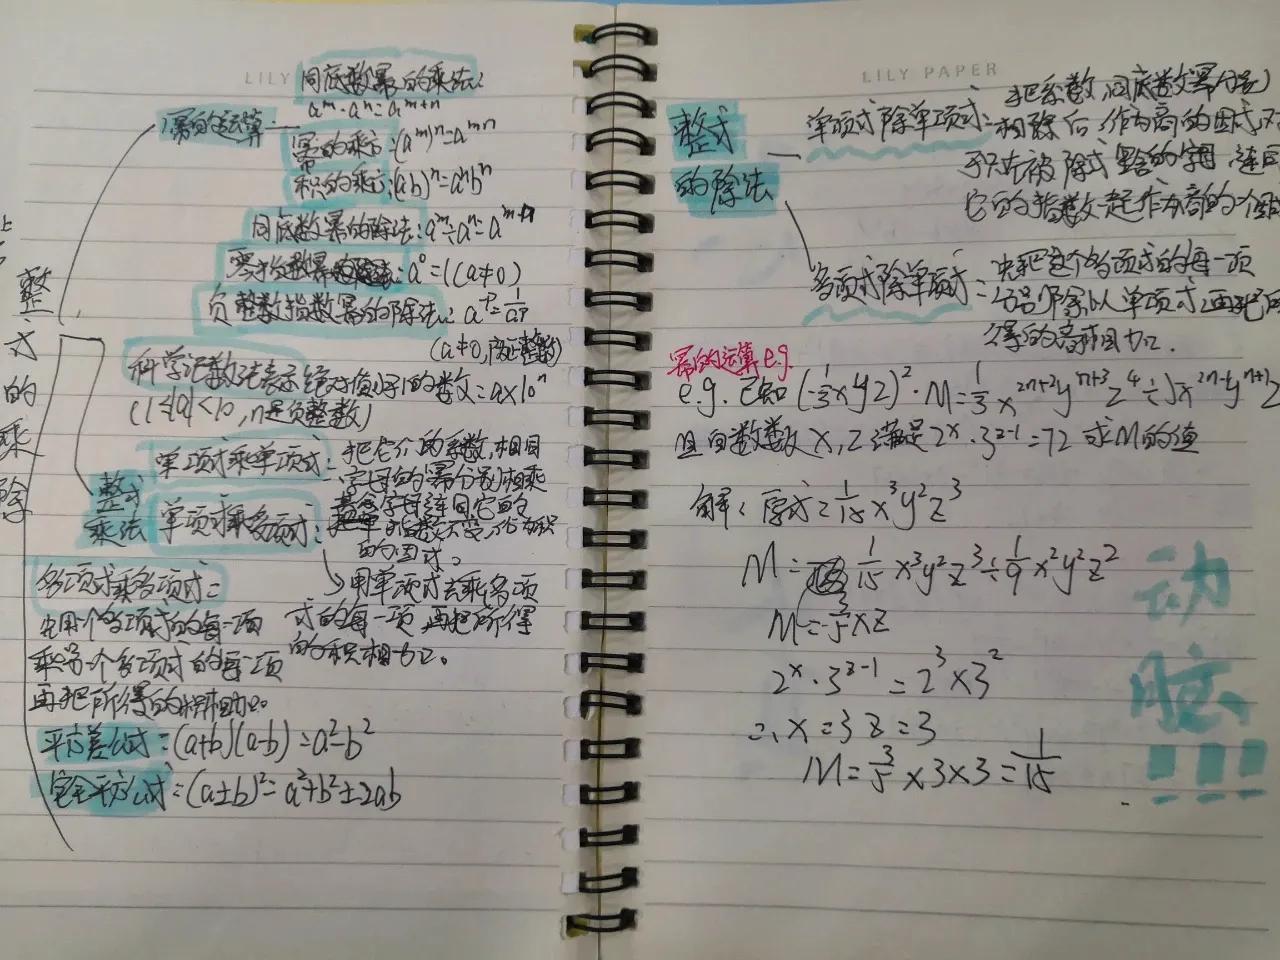 LILY
同底数幂的乘法:
aᵐ·aⁿ=aᵐ⁺ⁿ
幂的运算
幂的乘方:(aᵐ)ⁿ=aᵐⁿ
积的乘方:(ab)ⁿ=aⁿbⁿ
同底数幂的除法:aᵐ÷aⁿ=aᵐ⁻ⁿ
零指数幂的除法:a⁰=1(a≠0)
负整数指数幂的除法:a⁻ᵖ=1/aᵖ
(a≠0,p是正整数)
整式的乘除
科学记数法表示绝对值小于1的数:=a×10ⁿ
(1≤|a|<10,n是负整数)
整式乘法
单项式乘单项式:把它们的系数,相同
字母的幂分别相乘
字母连同它的
指数不变,作为积
的因式。
单项式乘多项式:
用单项式去乘多项
式的每一项,再把所得
的积相加。
多项式乘多项式:
先用一个多项式的每一项
乘另一个多项式的每一项
再把所得的积相加。
平方差公式:(a+b)(a-b)=a²-b²
完全平方公式:(a±b)²=a²+b²±2ab
LILY PAPER
整式
的除法
单项式除单项式:把系数,同底数幂分别
相除后,作为商的因式,对
于只在被除式里含的字母,连同
它的指数一起作为商的一个因式
多项式除单项式:先把这个多项式的每一项
分别除以单项式,再把所
得的商相加。
幂的运算e.g.
e.g.已知(-1/3xyz)²·M=1/3x²ⁿ⁺²yⁿ⁺³z⁴÷5x²ⁿ⁻¹yⁿ⁺¹z
且自数数x,z满足2ˣ·3ᶻ⁻¹=72求M的值
解:原式=1/15x³y²z³
M=1/15x³y²z³÷1/9x²y²z²
M=3/5xz
2ˣ·3ᶻ⁻¹=2³×3²
∴x=3 z=3
M=3/5×3×3=1/15
动
脑
!!!